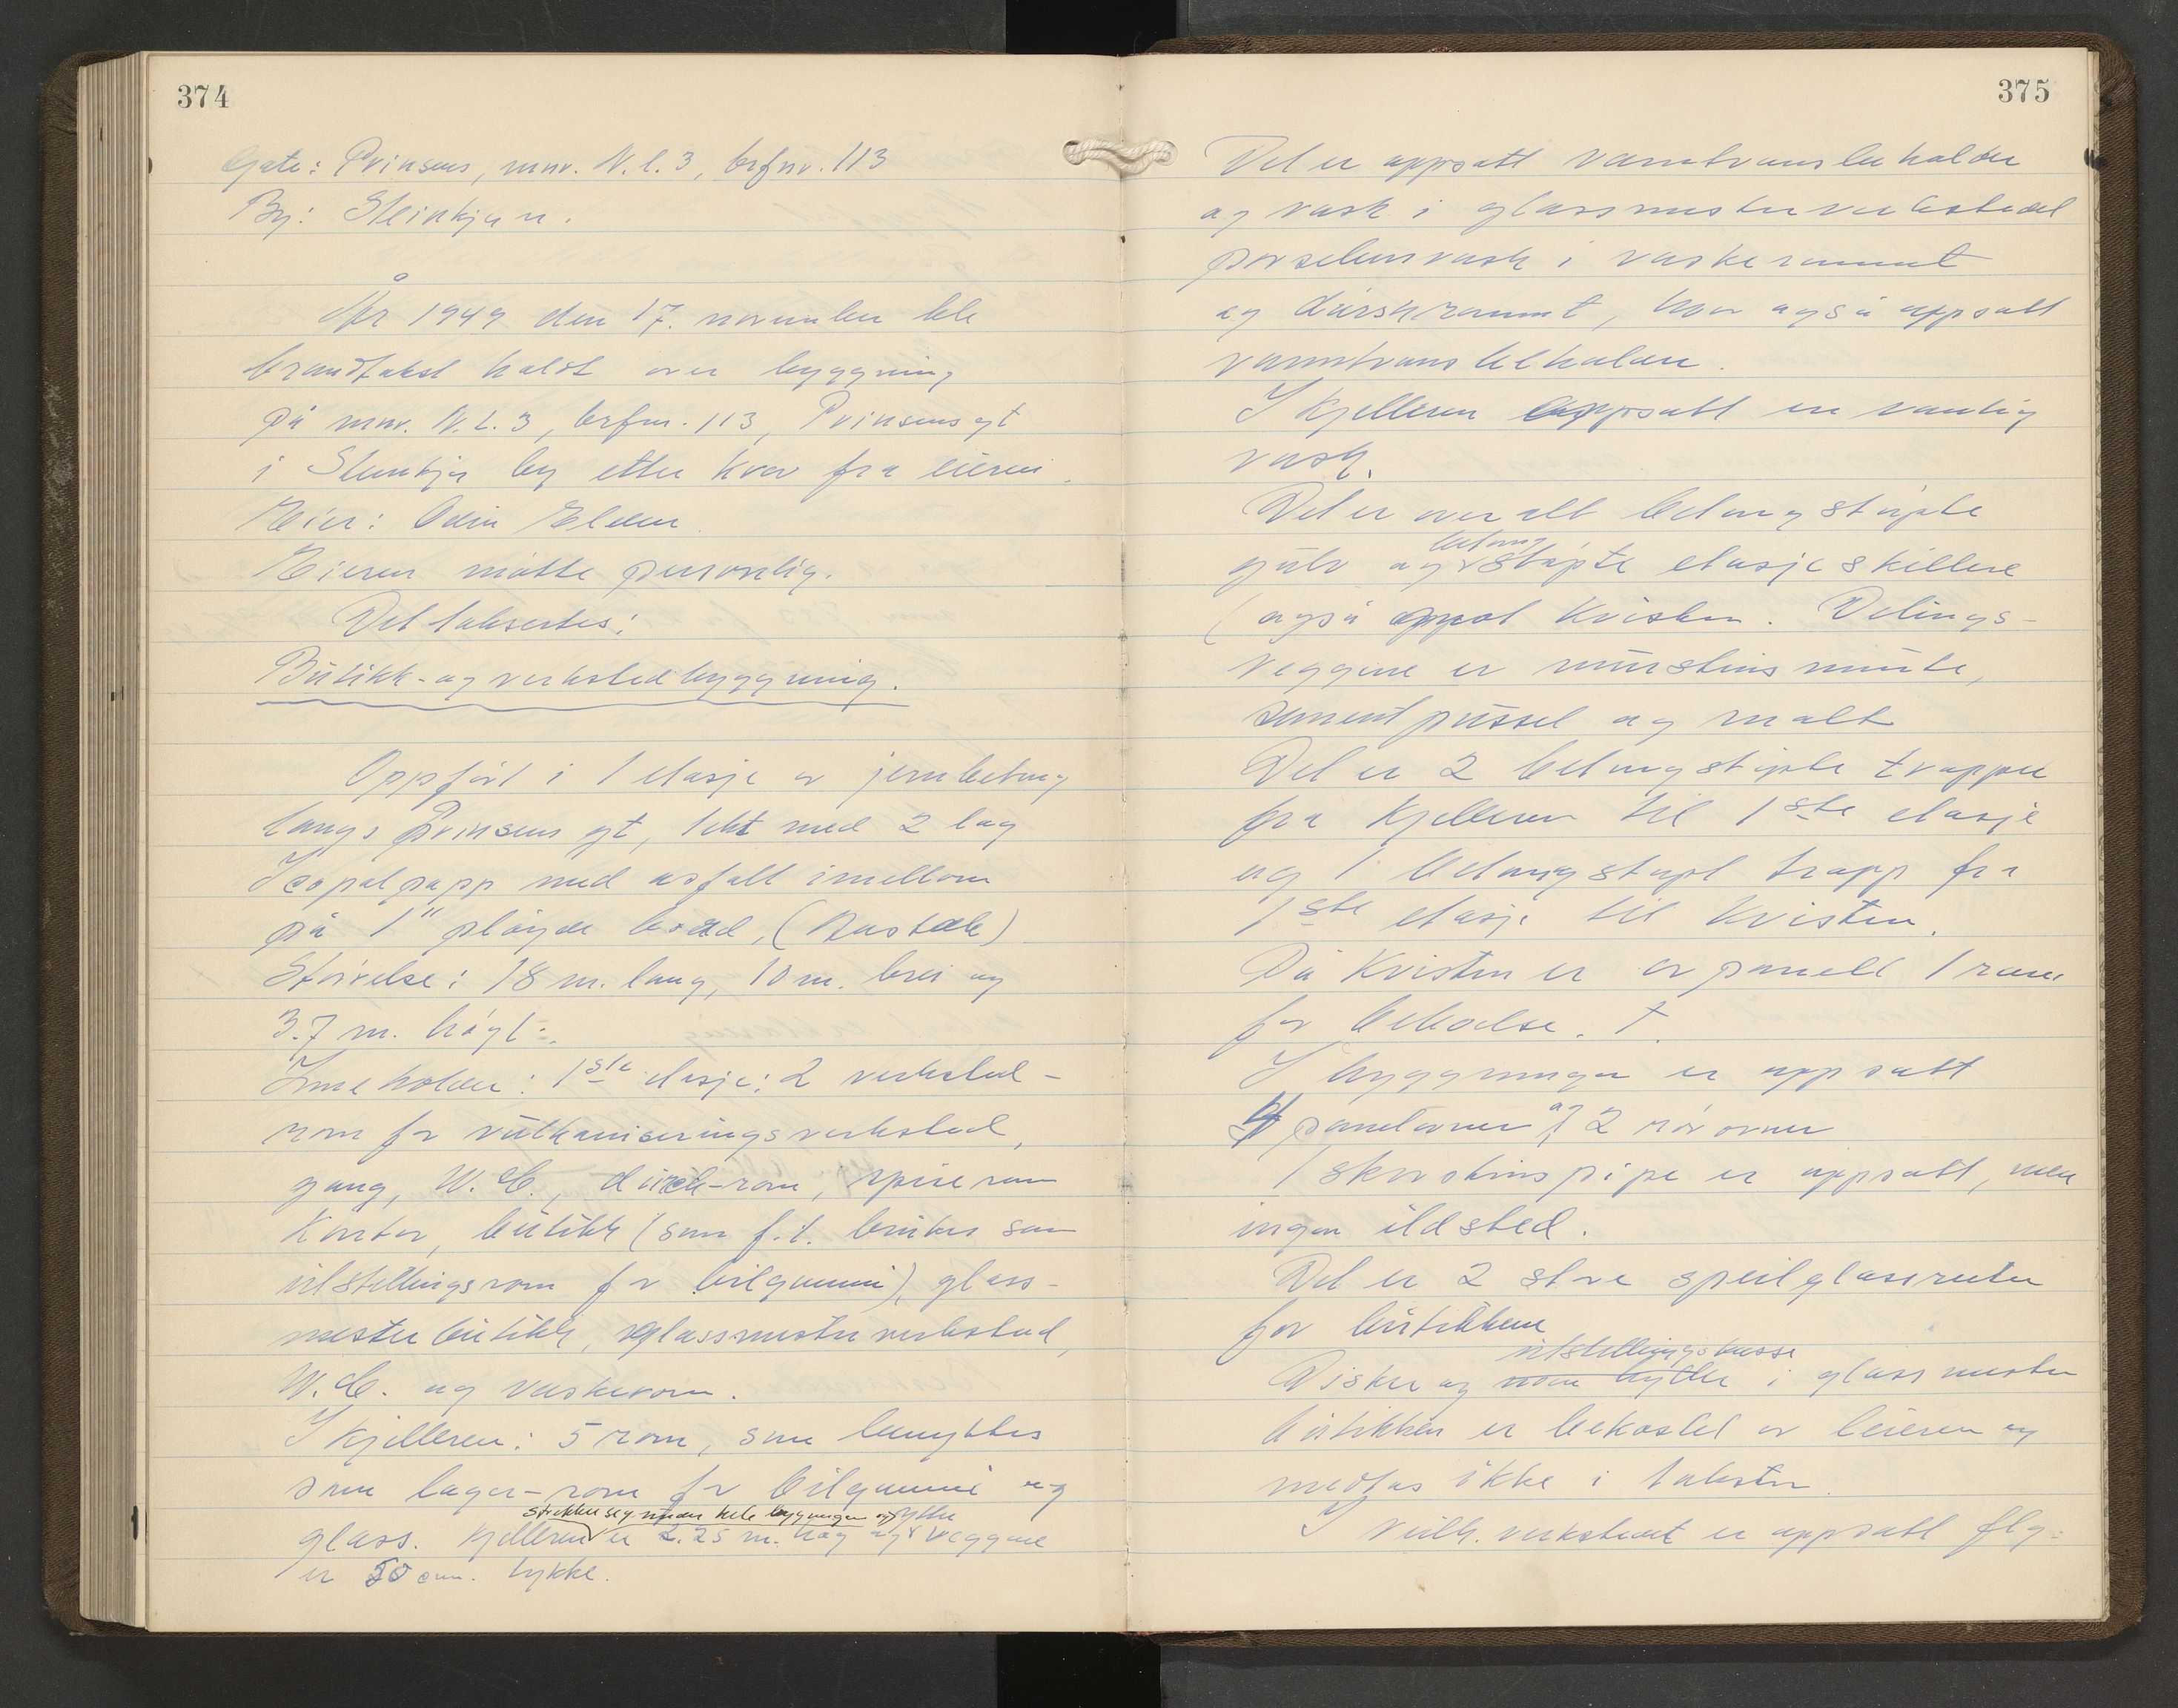 374
Gate: Prinsens, mnr. N.l.3, brfnr. 113
By: Steinkjer.
År 1949 den 17. november ble
brandtakst holdt over byggning
på mnr. N.l.3, brfnr. 113, Prinsensgt
i Steinkjer by etter krav fra eieren.
Eier: Odin Elden.
Eieren møtte personlig.
Det taksertes:
Butikk- og verkstedbyggning.
Oppført i 1 etasje av jernbetong
langs Prinsens gt, tekt med 2 lag
Icopalpapp med asfalt imellom
på 1" pløyde bord,
Størrelse: 18 m. lang, 10 m. brei og
3.7 m. høgt.
Inneholder: 1ste etasje: 2 verksted-
rom for vulkaniseringsverksted,
gang, W.C., dusch-rom, spiserom
Kontor, butikk (som f.t. brukes som
utstillingsrom for bilgummi), glass-
mesterbutikk, glassmesterverksted,
W.C. og vaskerom.
I kjelleren: 5 rom, som benyttes
som lager-rom for bilgummi og
strekker seg under hele bygningen og ytter
glass. Kjelleren er 2.25 m. høg og veggene
er 50 cm. tykke.
375
Det er oppsatt varmtvannsbeholder
og vask i glassmesterverkstedet
porselensvask i vaskerommet
og duschrommet, hvor også oppsatt
varmtvannsbeholder.
I kjelleren oppsatt en vanlig
vask.
Det er overalt betongstøpte
betong
gulv og støpte etasjeskillere
(også mot kvisten. Delings-
veggene er murstensmurte,
sementpusset og malt
Det er 2 betongstøpte trapper
fra kjelleren til 1ste etasje
og 1 betongstøpt trapp fra
1ste etasje til kvisten.
På kvisten er avpanelt 1 rom
for beboelse. †
I byggningen er oppsatt
4 panelovner og 2 rørovner
1 skorstenspipe er oppsatt, men
ingen ildsted.
Det er 2 store speilglassruter
for butikkene
utstillingskasse
Disker og i glassmester
butikken er bekostet av leieren og
medtas ikke i taksten.
I vulk. verkstedet er oppsatt flg.